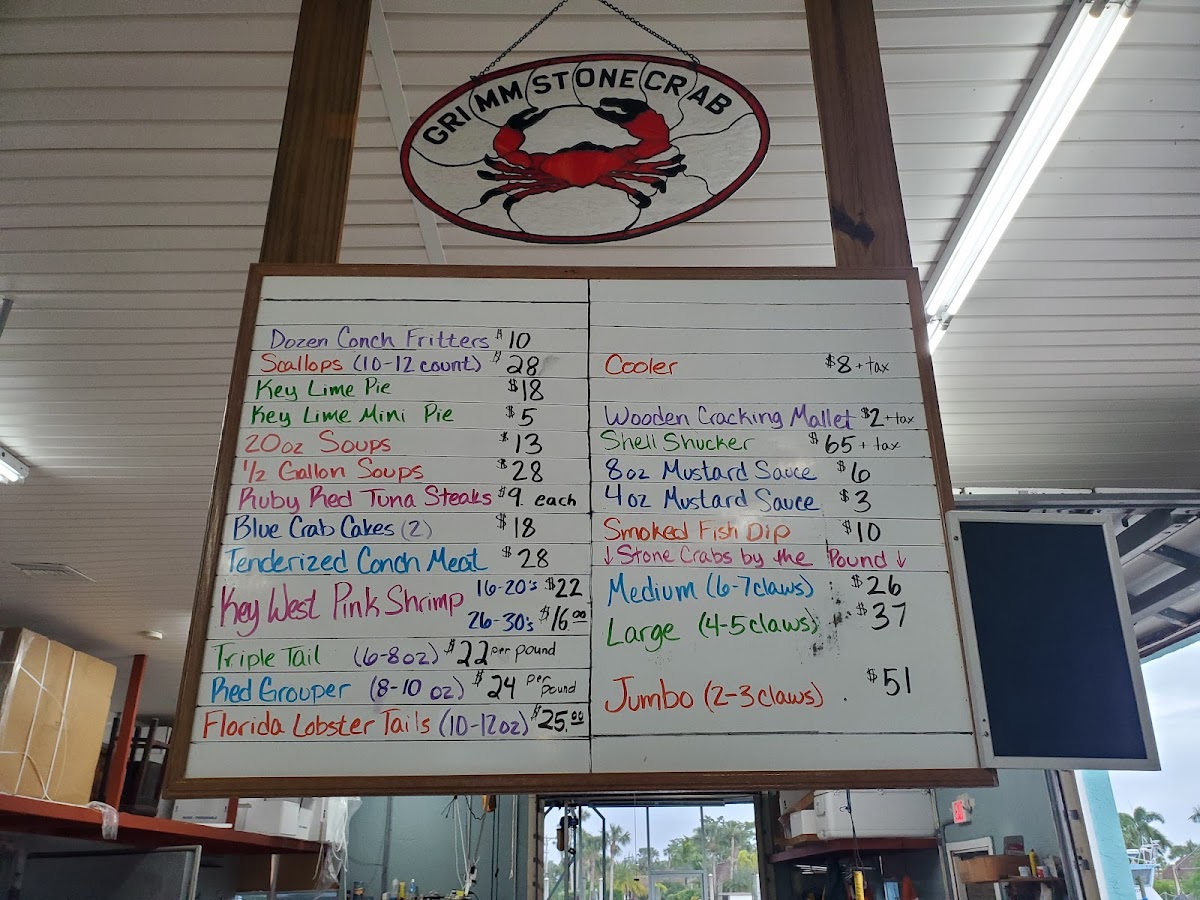 GRIMM STONE CRAB
Dozen Conch Fritters $10
Scallops (10-12 count) $28
Key Lime Pie $18
Key Lime Mini Pie $5
20oz Soups $13
1/2 Gallon Soups $28
Ruby Red Tuna Steaks $9. each
Blue Crab Cakes (2) $18
Tenderized Conch Meat $28
Key West Pink Shrimp 16-20's $22
26-30's $16.00
Triple Tail (6-8oz) $22 per pound
Red Grouper (8-10 oz) $24 per pound
Florida Lobster Tails (10-12oz) $25.00
Cooler $8 + tax
Wooden Cracking Mallet $2 + tax
Shell Shucker $65 + tax
8oz Mustard Sauce $6
4oz Mustard Sauce $3
Smoked Fish Dip $10
↓Stone Crabs by the Pound↓
Medium (6-7claws) $26
Large (4-5claws) $37
Jumbo (2-3claws) $51